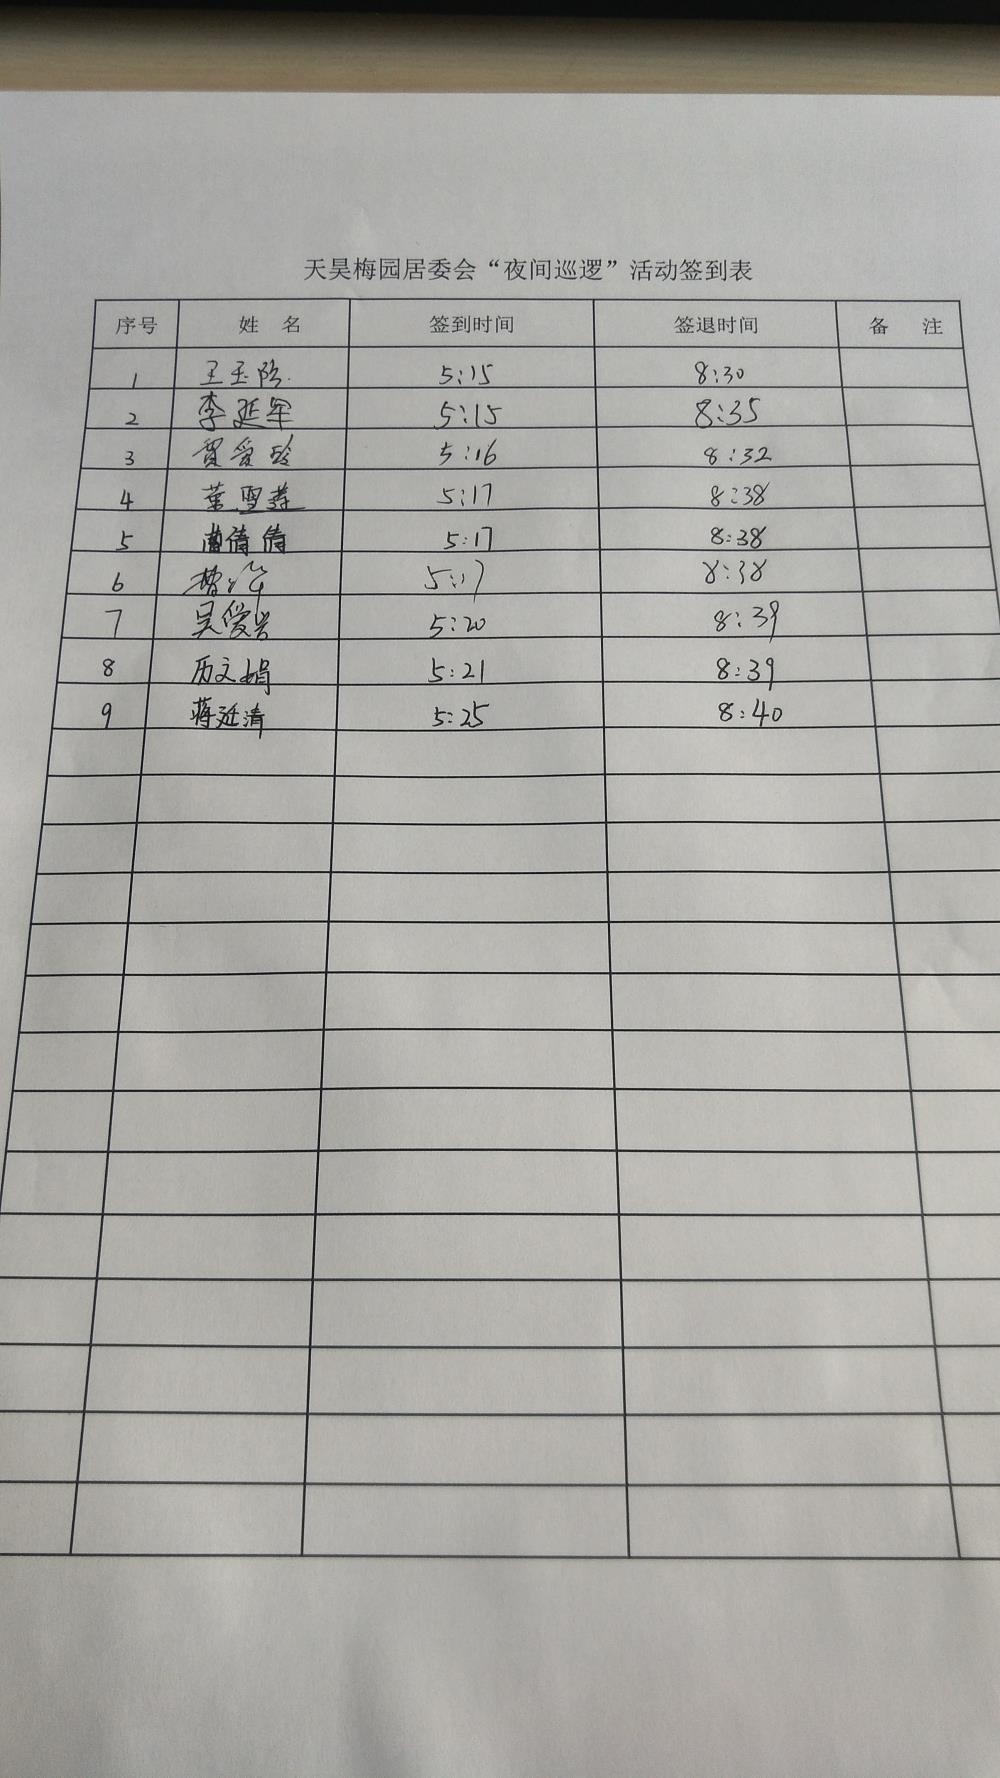 天昊梅园居委会“夜间巡逻”活动签到表
序号 姓 名 签到时间 签退时间 备 注
1 王玉 5:15 8:30
2 李延军 5:15 8:35
3 贾爱玲 5:16 8:32
4 叶雪莲 5:17 8:38
5 曲倩倩 5:17 8:38
6 5:17 8:38
7 吴爱兰 5:20 8:39
8 历文娟 5:21 8:39
9 蒋延清 5:25 8:40